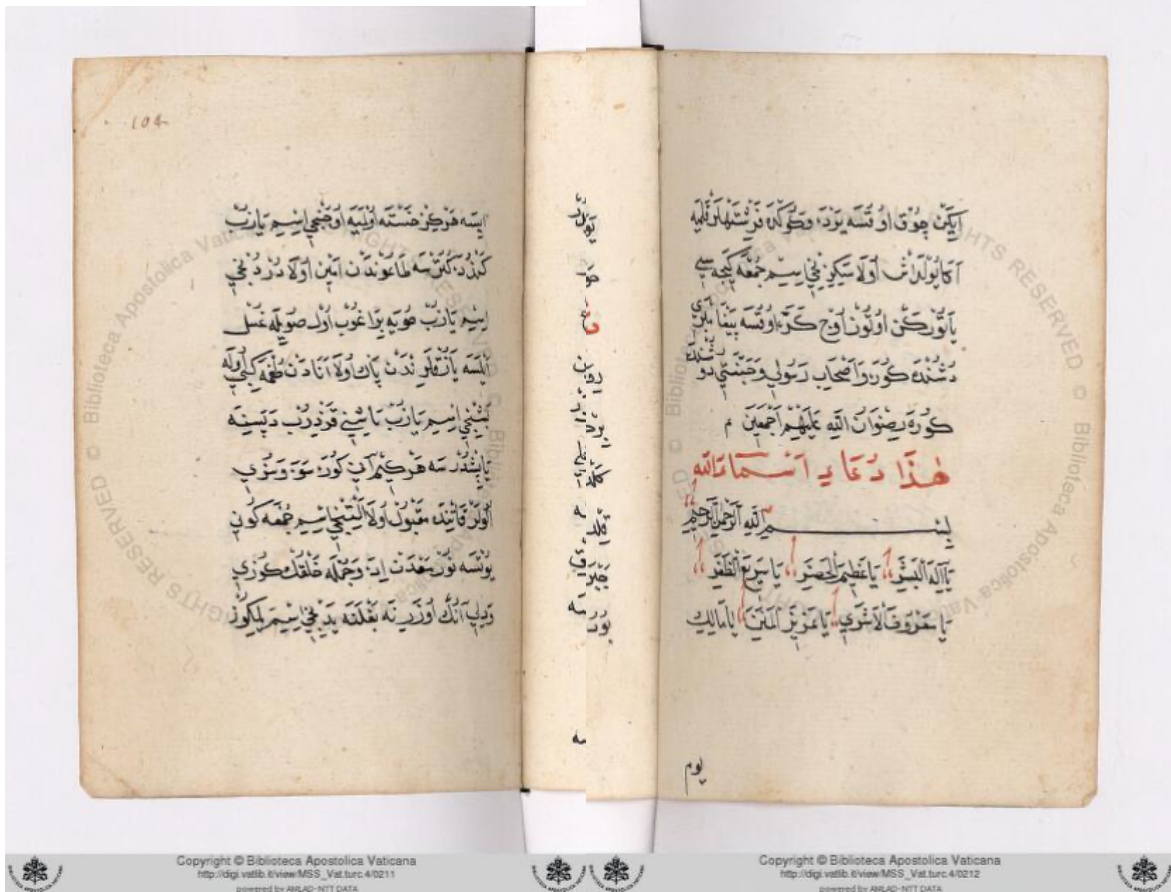 104
ايسه هركز خسته اولميه اوچنجي اسيم يازب
كندده كترسه لماعوندن امين اولا دردنجي
اسيم يازب صويه براغوب اول صويله غسل
ايلسه يازقلرندن پاك اولا انادن طغمه كبي اوله
بشنجي اسيم يازب باشني قزدرب دبسينه
ياپشدرسه هركيم اني كوره سوه وسوزي
اولر قاتنده مقبول اولا التنجي اسيم جمعه كون
يونسه نور سعدت ايده وجمله خلقك كوزي
ودلي انك اوزرينه بغلنه يدنجي اسيم لمكوز
ايكن چوق اوقسه يرده وكوكده فرشته لر قلمه
اكا يولداش اولا سكزنجي اسيم جمعه كيجه سي
ياتوركن اوتون اوچ كره اوقسه بيغامبري
دشنده كوره واصحاب رسولي وجنتي دوشنده
كوره رضوان الله عليهم اجمعين م
هذا دعاي اسماء الله
بسم الله الرحمن الرحيم
يا اله البشر يا عظيم الخضر يا سريع الظفر
يا معروف الاثري يا عزيز المنن يا مالك
يوم
Copyright © Biblioteca Apostolica Vaticana
http://digi.vatlib.it/view/MSS_Vat.turc.4/0211
powered by AMLAD-NTT DATA
Copyright © Biblioteca Apostolica Vaticana
http://digi.vatlib.it/view/MSS_Vat.turc.4/0212
powered by AMLAD-NTT DATA